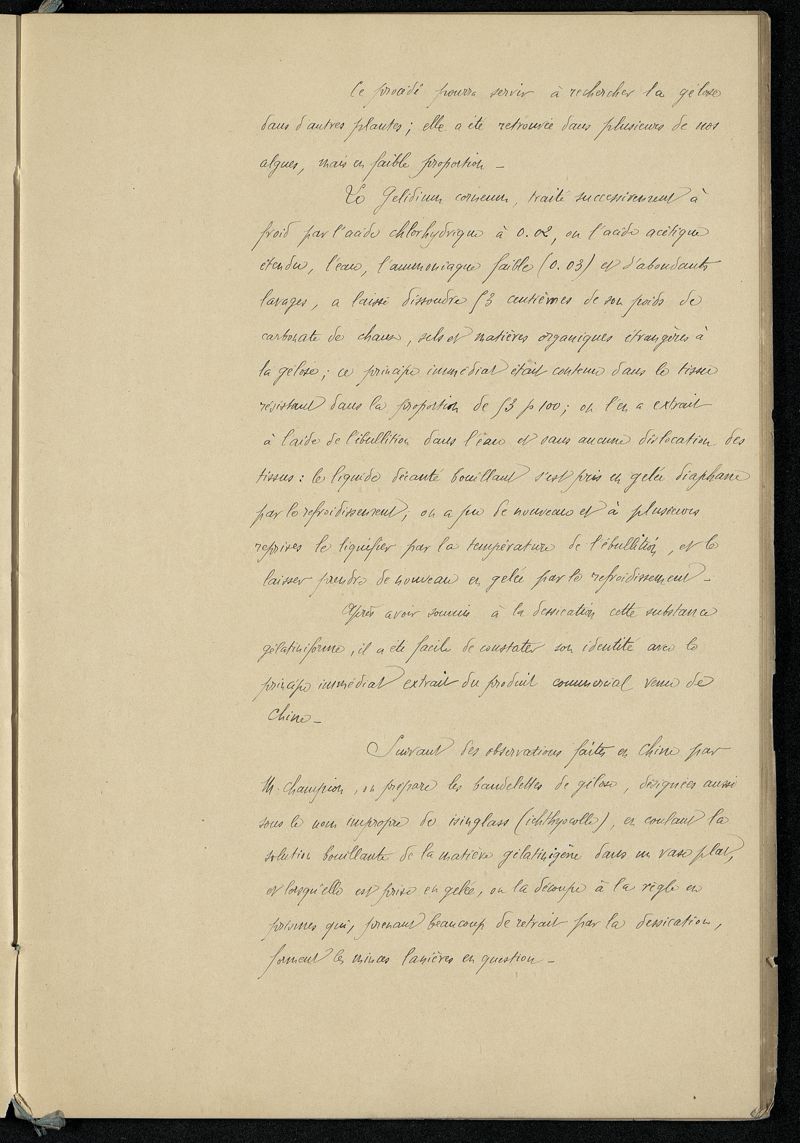 Ce procédé pourra servir à rechercher la gélose
dans d'autres plantes; elle a été retrouvée dans plusieurs de nos
algues, mais en faible proportion —
Le Gelidium corneum, traité successivement à
froid par l'acide chlorhydrique à 0.02, ou l'acide acétique
étendu, l'eau, l'ammoniaque faible (0.03) et d'abondants
lavages, a laissé dissoudre 53 centièmes de son poids de
carbonate de chaux, sels et matières organiques étrangères à
la gélose; ce principe immédiat était contenu dans le tissu
résistant dans la proportion de 53 p 100; on l'en a extrait
à l'aide de l'ébullition dans l'eau et sans aucune dislocation des
tissus: le liquide décanté bouillant s'est pris en gelée diaphane
par le refroidissement; on a pu de nouveau et à plusieurs
reprises le liquéfier par la température de l'ébullition, et le
laisser prendre de nouveau en gelée par le refroidissement —
Après avoir soumis à la dessication cette substance
gélatiniforme, il a été facile de constater son identité avec le
principe immédiat extrait du produit commercial venu de
Chine —
Suivant des observations faites en Chine par
M. Champion, on prépare les bandelettes de gélose, désignées aussi
sous le nom impropre de isinglass (ichthyocolle), en coulant la
solution bouillante de la matière gélatinigène dans un vase plat,
et lorsqu'elle est prise en gelée, on la découpe à la règle en
prismes qui, prenant beaucoup de retrait par la dessication,
forment les minces lanières en question —